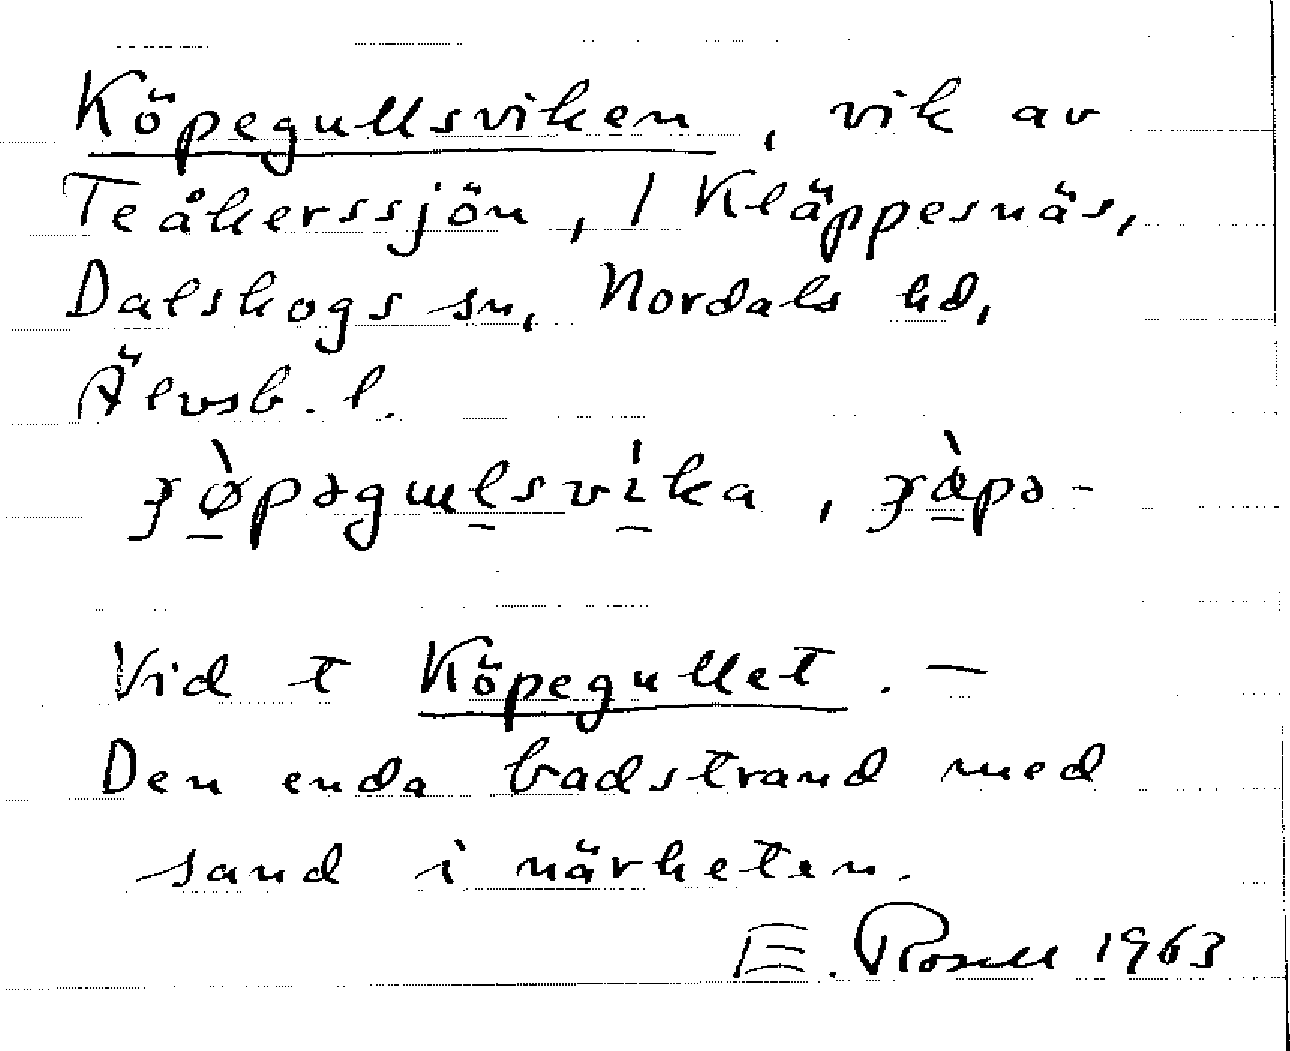 Köpegullsviken, vik av
Teåkerssjön, / Kläppesnäs,
Dalskogs sn, Nordals hd,
Älvsb. l.
ƺø̠̀pəgɯl̠svi̠̍ka, ƺæ̠̀pə-
Vid t Köpegullet. —
Den enda badstrand med
sand i närheten.
E. Rosell 1963